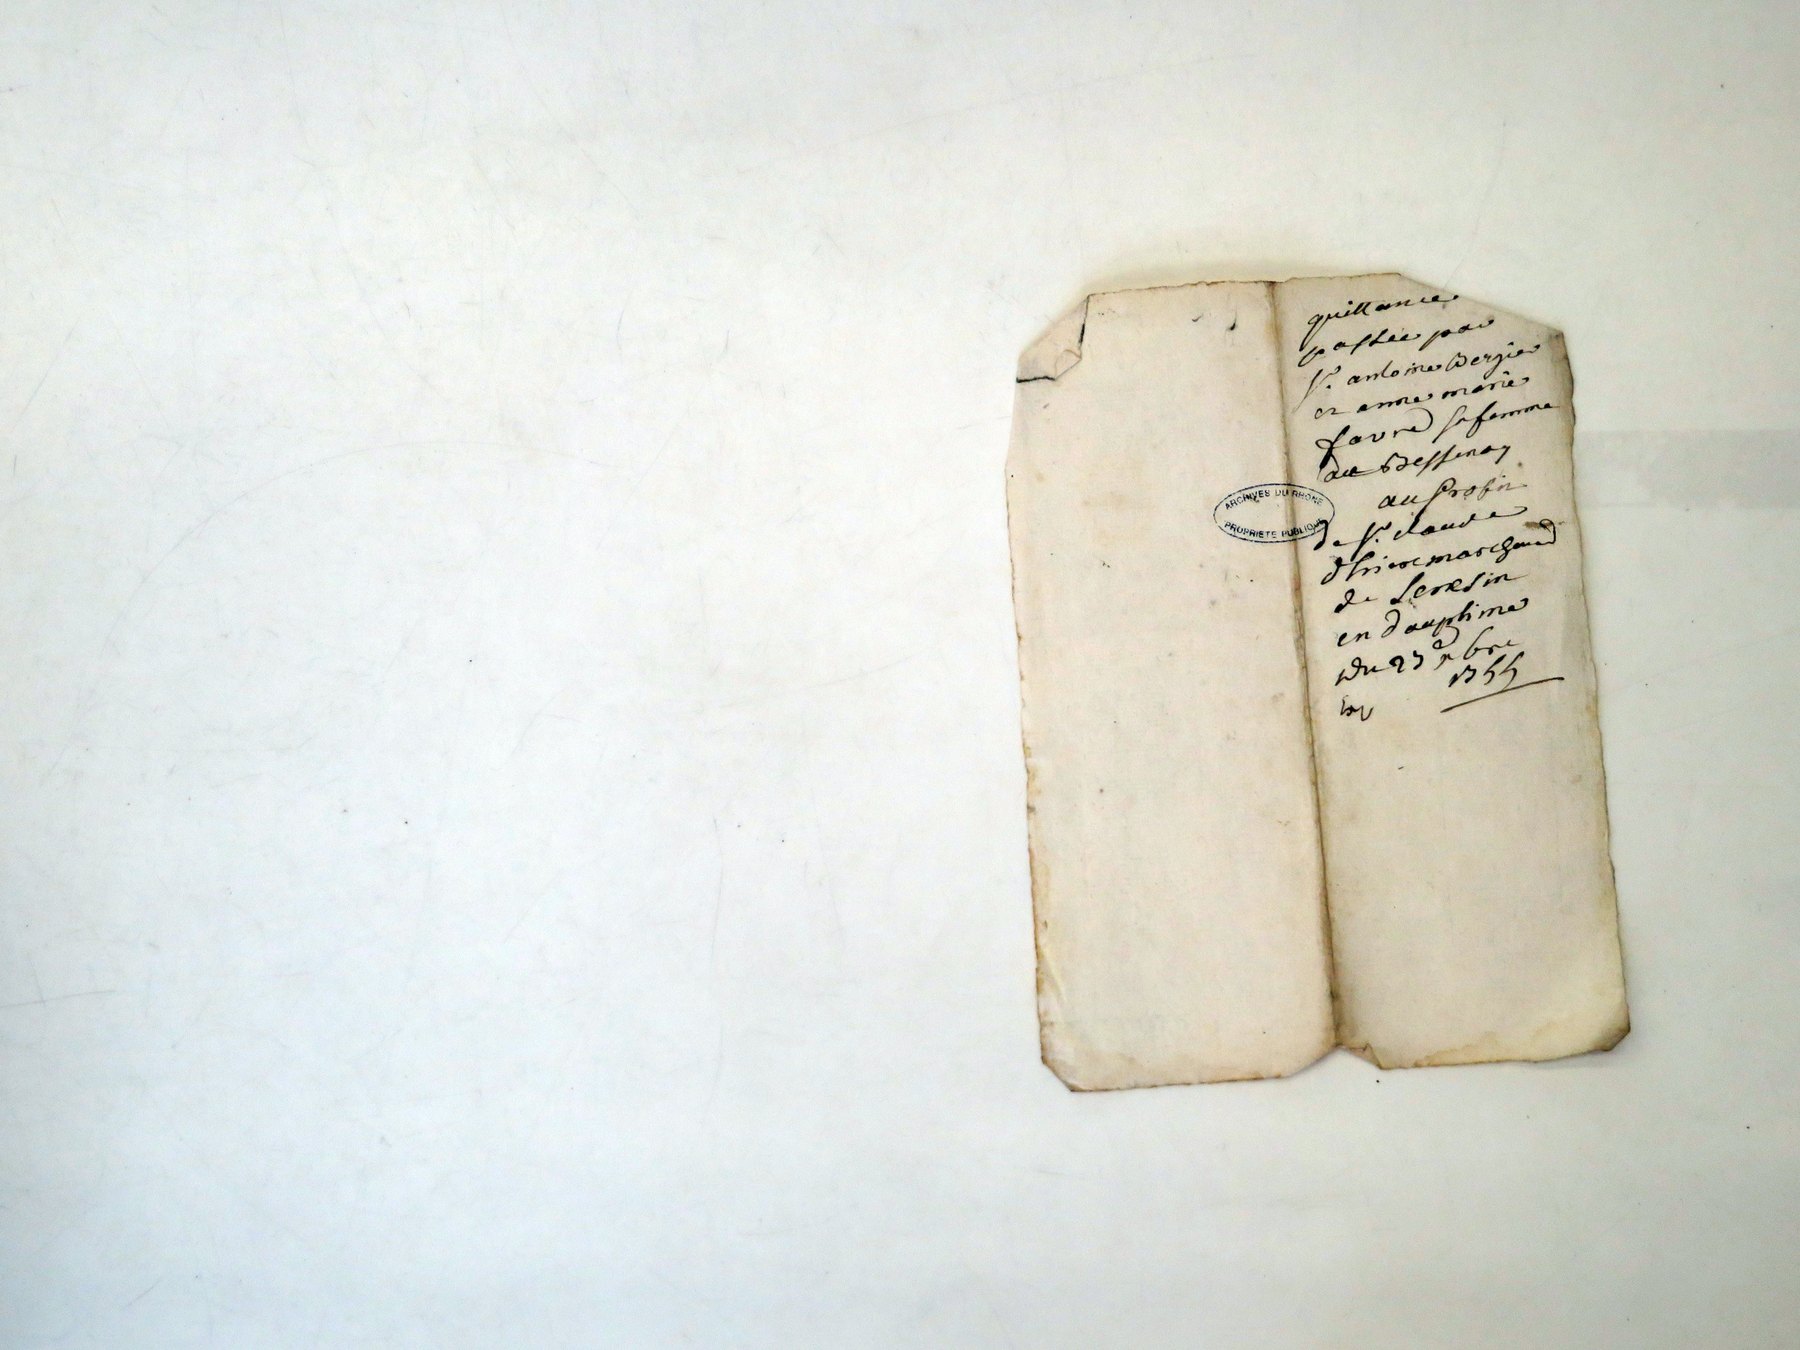 quittance
passée par
Sr. antoine Bergier
et anne marie
favre sa femme
de Bessenay
au profit
de Sr. claude
marchand
de
en dauphine
du 23e 9bre
1755
ARCHIVES DU RHONE
PROPRIETE PUBLIQUE